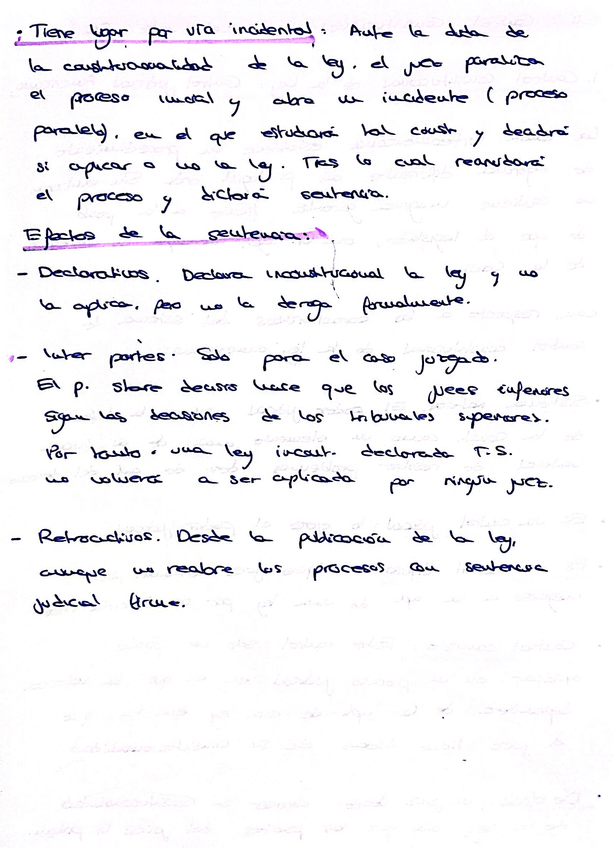 · Tiene lugar por vía incidental: Ante la duda de
la constitucionalidad de la ley, el juez paraliza
el proceso inicial y abre un incidente (proceso
paralelo), en el que estudiará tal const y decidirá
si aplicar o no la ley. Tras lo cual reanudará
el proceso y dictará sentencia.
Efectos de la sentencia:
- Declarativos. Declara inconstitucional la ley y no
la aplica, pero no la deroga formalmente.
- Inter partes. Solo para el caso juzgado.
El p. stare decisis hace que los jueces inferiores
sigan las decisiones de los tribunales superiores.
Por tanto, una ley inconst. declarada T.S.
no volverá a ser aplicada por ningún juez.
- Retroactivos. Desde la publicación de la ley,
aunque no reabre los procesos con sentencia
judicial firme.